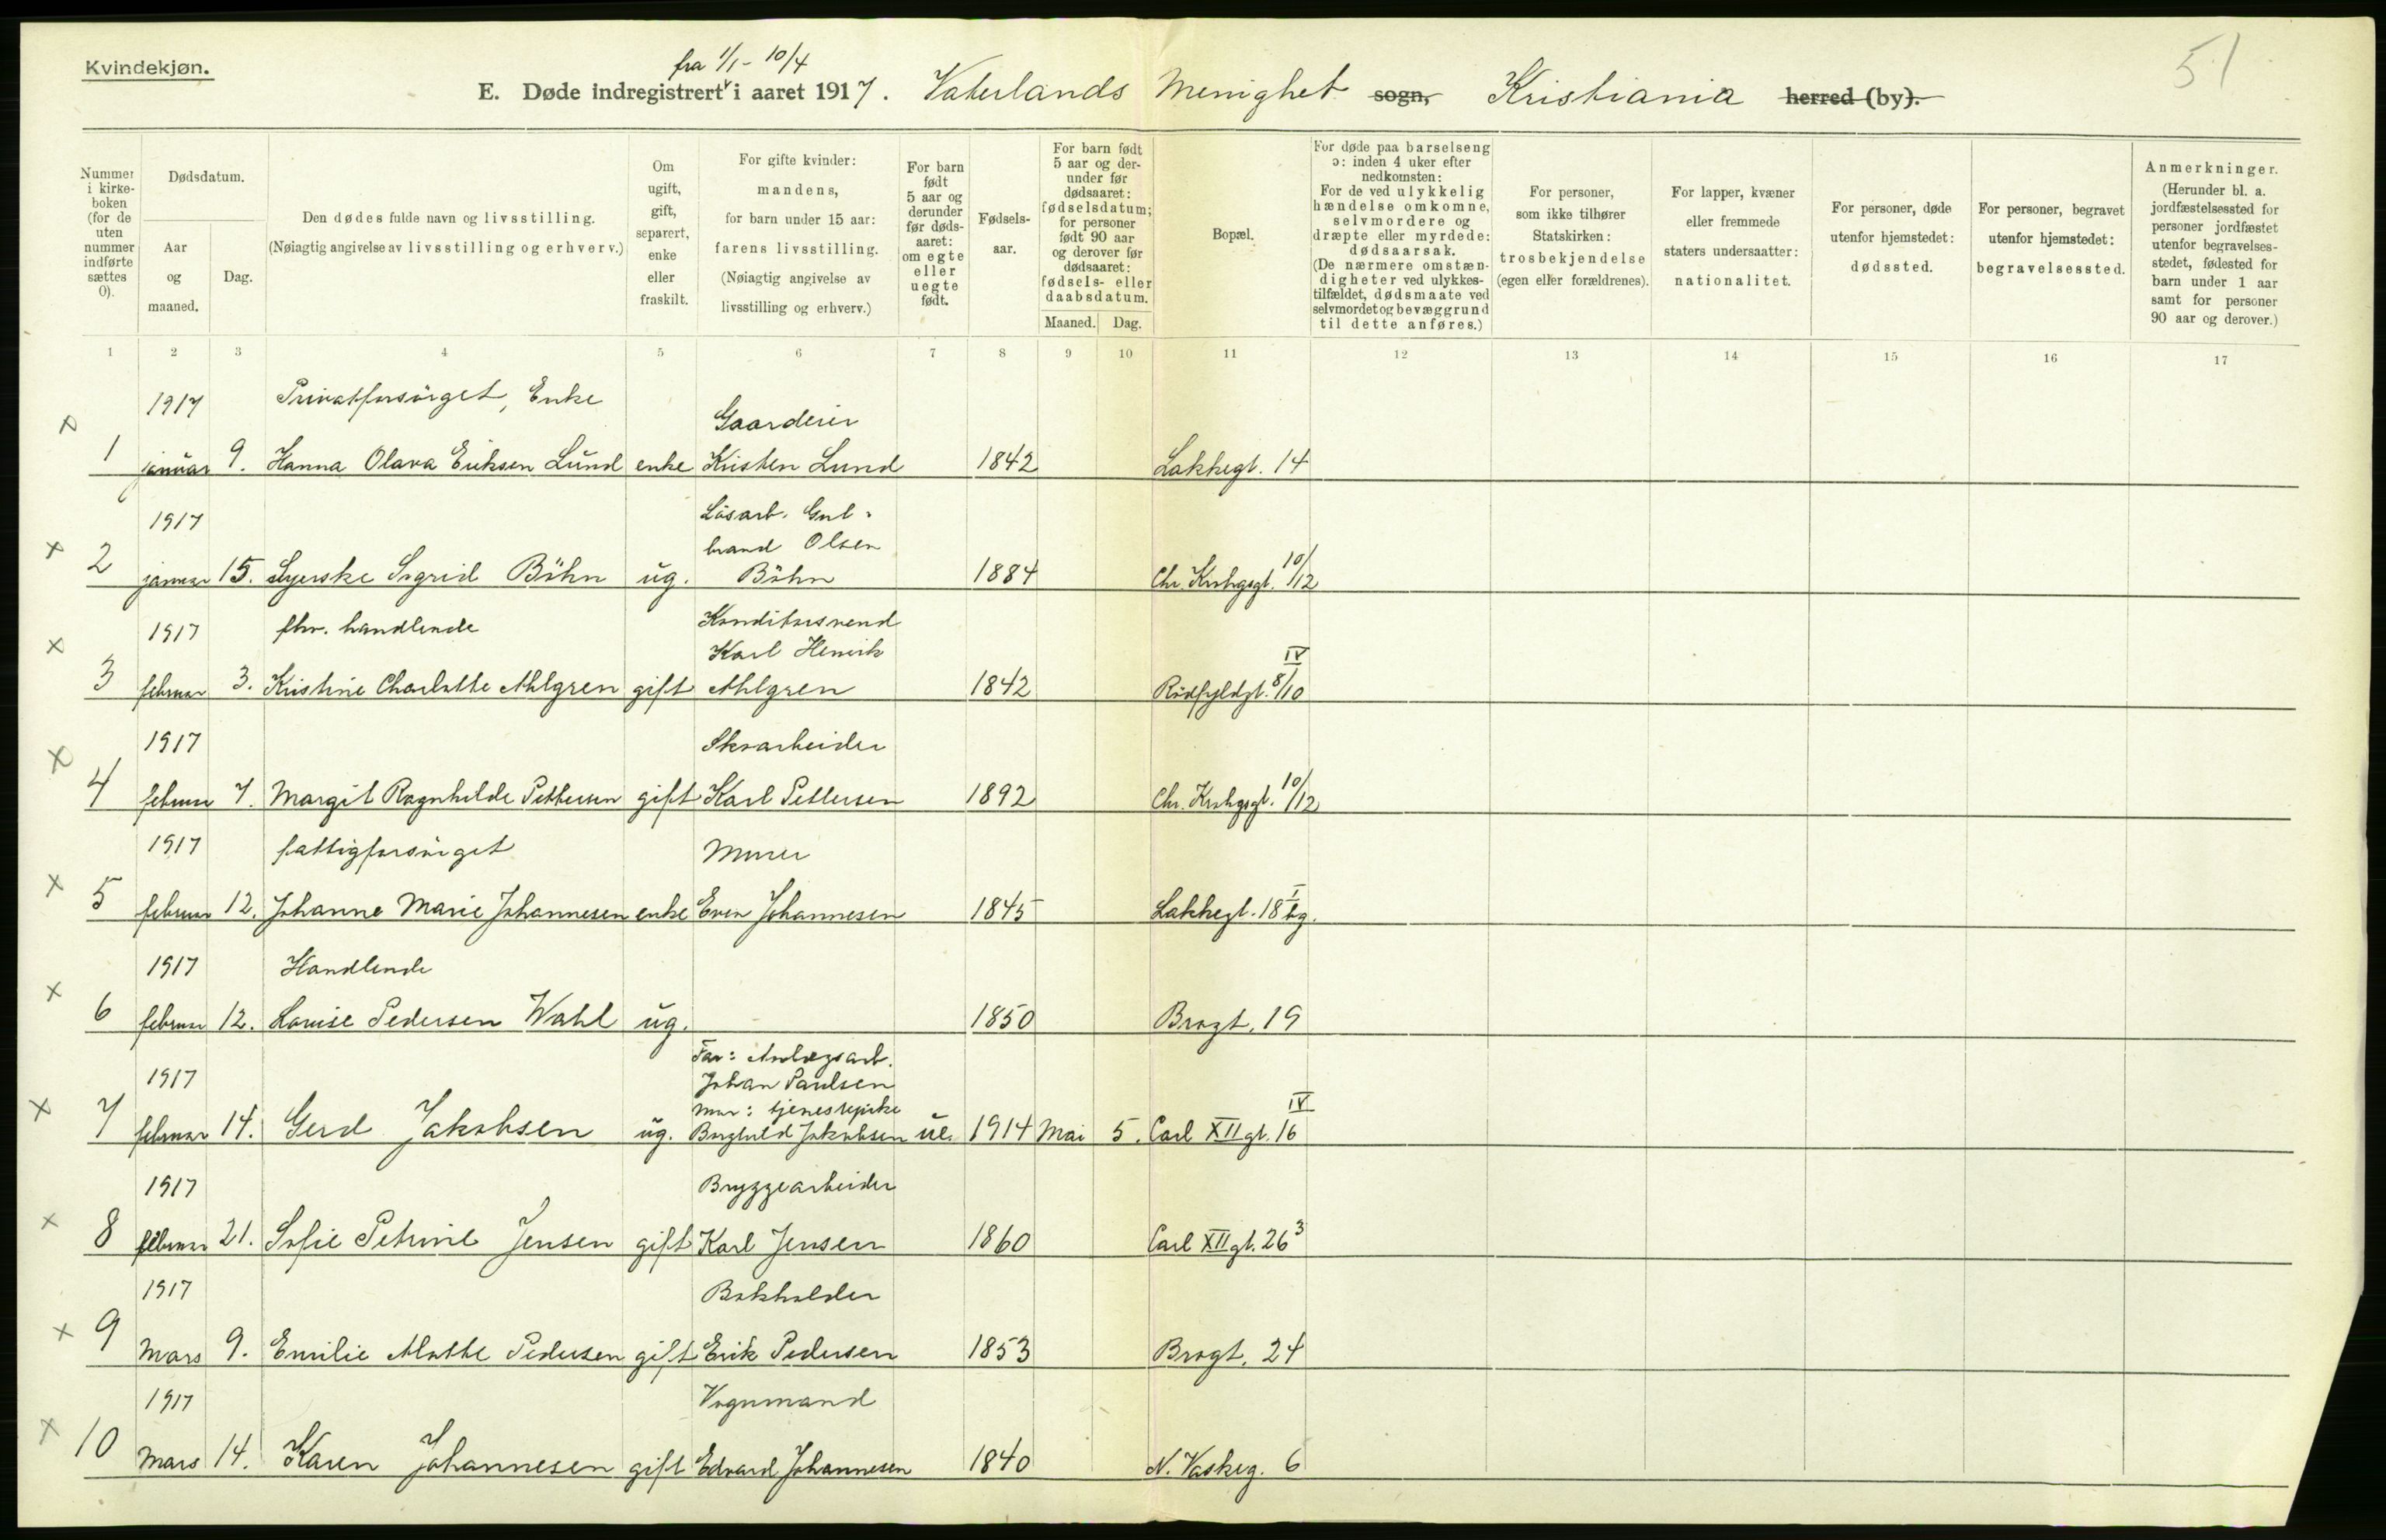 Kvindekjøn.
fra 1/1 - 10/4
E. Døde indregistrert i aaret 1917. Vaterlands Menighet sogn, Kristiania herred (by).
51
Nummer i kirke-boken (for de uten nummer indførte sættes 0).
Dødsdatum.
Aar og maaned.
Dag.
Den dødes fulde navn og livsstilling.
(Nøiagtig angivelse av livsstilling og erhverv.)
Om ugift, gift, separert, enke eller fraskilt.
For gifte kvinder: mandens, for barn under 15 aar: farens livsstilling.
(Nøiagtig angivelse av livsstilling og erhverv.)
For barn født 5 aar og derunder før døds-aaret: om egte eller uegte født.
Fødsels-aar.
For barn født 5 aar og der-under før dødsaaret: fødselsdatum; for personer født 90 aar og derover før dødsaaret: fødsels- eller daabsdatum.
Maaned. Dag.
Bopæl.
For døde paa barselseng ɔ: inden 4 uker efter nedkomsten:
For de ved ulykkelig hændelse omkomne, selvmordere og dræpte eller myrdede: dødsaarsak.
(De nærmere omstæn-digheter ved ulykkes-tilfældet, dødsmaate ved selvmordet og bevæggrund til dette anføres.)
For personer, som ikke tilhører Statskirken: trosbekjendelse (egen eller forældrenes).
For lapper, kvæner eller fremmede staters undersaatter: nationalitet.
For personer, døde utenfor hjemstedet: dødssted.
For personer, begravet utenfor hjemstedet: begravelsessted.
Anmerkninger.
(Herunder bl. a. jordfæstelsessted for personer jordfæstet utenfor begravelses-stedet, fødested for barn under 1 aar samt for personer 90 aar og derover.)
1 2 3 4 5 6 7 8 9 10 11 12 13 14 15 16 17
1917 Privatforsörget, Enke Gaardeier
1 januar 9. Hanna Olava Eriksen Lund enke Kristen Lund 1842 Lakkegt. 14
1917 Lösarb. Gul-
brand Olsen
2 januar 15. Syerske Sigrid Böhn ug. Böhn 1884 Chr. Krohgsgt. 10/12
1917 fhv. handlende Konditorsvend
Karl Henrik
3 februar 3. Kristine Charlotte Ahlgren gift Ahlgren 1842 Rödfyldgt. 8/10 IV
1917 Skoarbeider
4 februar 7. Margit Ragnhilde Pettersen gift Karl Pettersen 1892 Chr. Krohgsgt. 10/12
1917 fattigforsörget Murer
5 februar 12. Johanne Marie Johannesen enke Even Johannesen 1845 Lakkegt. 18 I bg.
1917 Handlende
6 februar 12. Louise Pedersen Wahl ug. 1850 Brogt. 19
1917 Far: Anlægsarb.
Johan Paulsen
Mor: tjenestepike
7 februar 14. Gerd Jakobsen ug. Borghild Jakobsen ue. 1914 Mai 5. Carl XII gt. 16 IV
1917 Bryggearbeider
8 februar 21. Sofie Petrine Jensen gift Karl Jensen 1860 Carl XII gt. 26 3
1917 Bokholder
9 Mars 9. Emilie Mathe Pedersen gift Erik Pedersen 1853 Brogt. 24
1917 Vognmand
10 Mars 14. Karen Johannesen gift Edvard Johannesen 1840 N. Vaskeg. 6